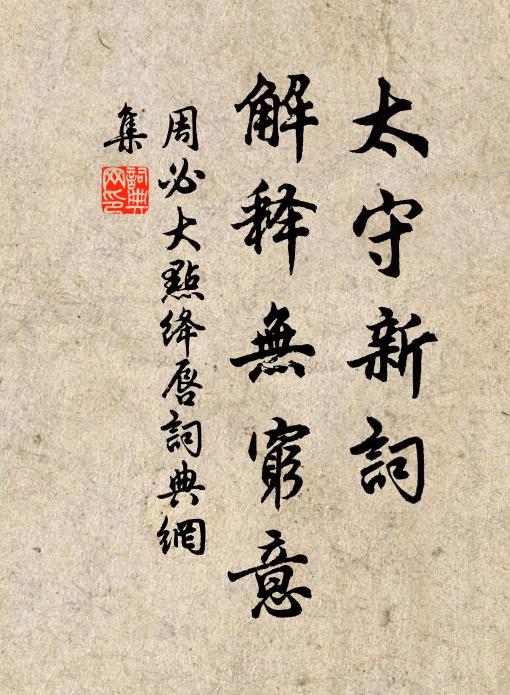 太守新詞
解释無窮意
周必大點绛唇詞典網
集
詞典
网印